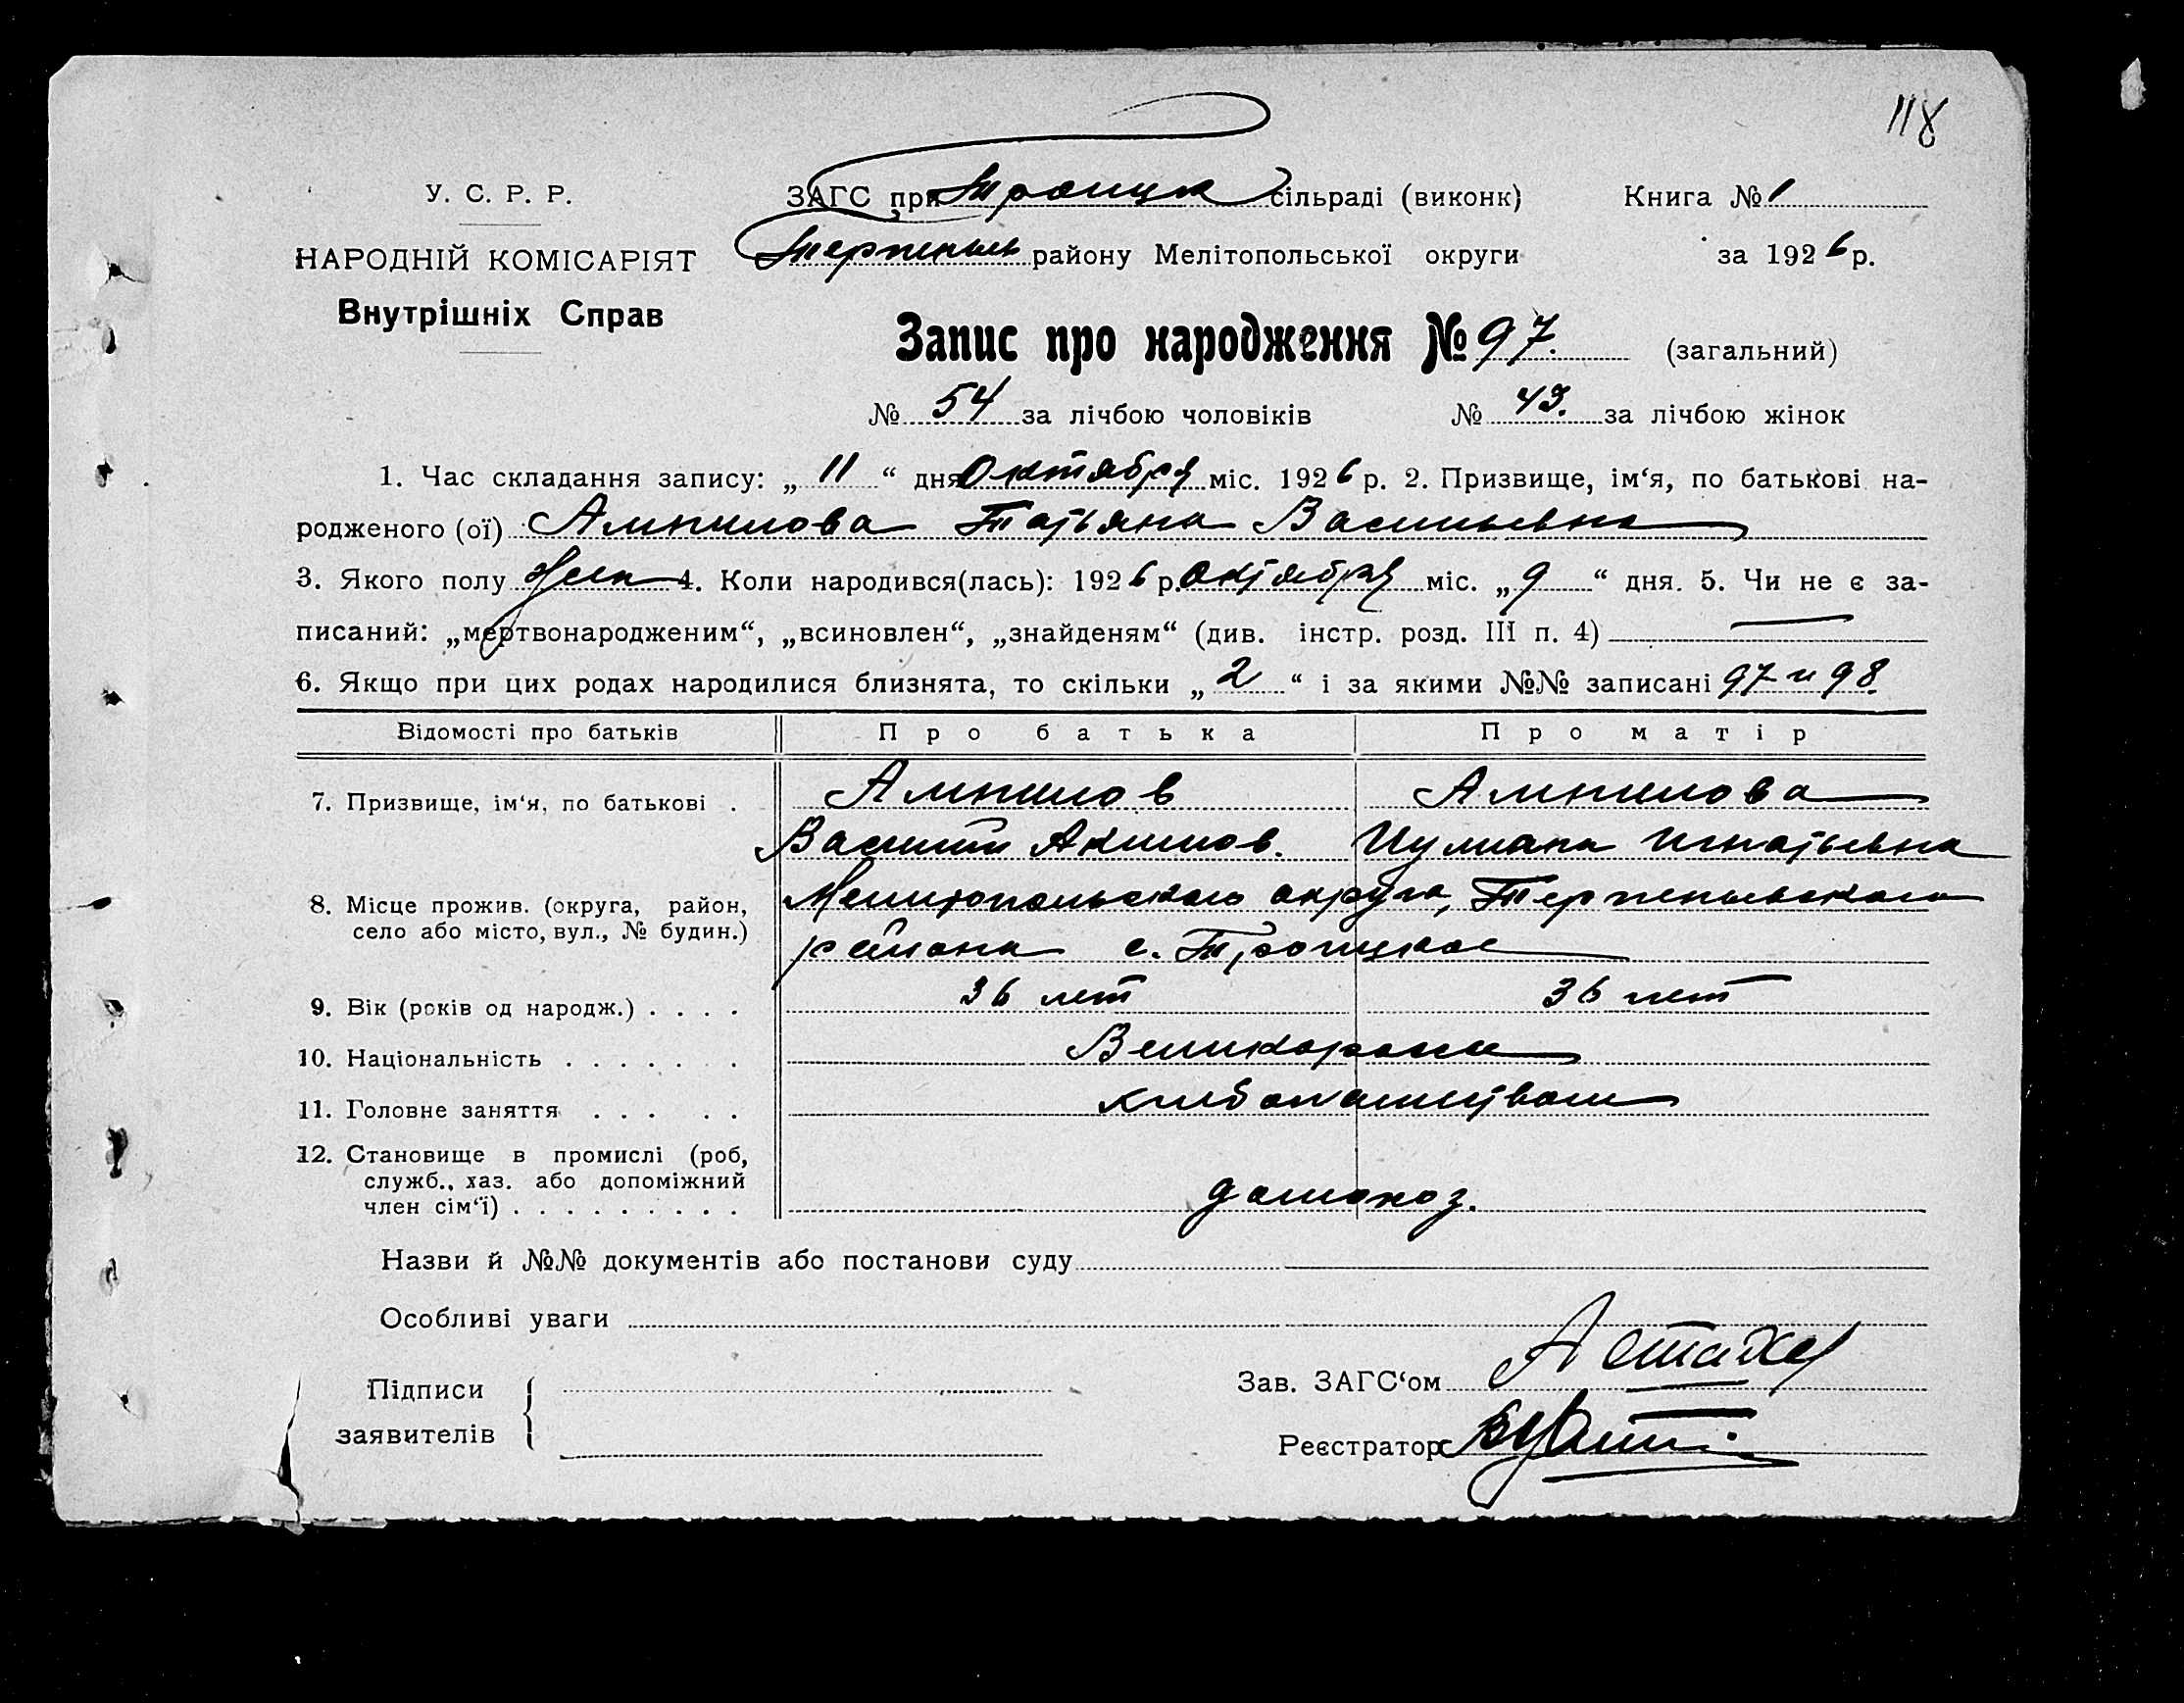 118
У. С. Р. Р.
ЗАГС при Троицк сільраді (виконк)
Книга № 1
НАРОДНІЙ КОМІСАРІЯТ
Терпеньев району Мелітопольської округи
за 1926 р.
Внутрішніх Справ
Запис про народження № 97. (загальний)
№ 54 за лічбою чоловіків № 43. за лічбою жінок
1. Час складання запису: „ 11 “ дня Октября міс. 1926 р. 2. Призвище, ім‘я, по батькові на-
родженого (ої) Ампилова Татьяна Васильевна
3. Якого полу Жен 4. Коли народився(лась): 1926 р. Октября міс. „ 9 “ дня. 5. Чи не є за-
писаний: „мертвонародженим“, „всиновлен“, „знайденям“ (див. інстр. розд. III п. 4) —
6. Якщо при цих родах народилися близнята, то скільки „ 2 “ і за якими №№ записані 97 и 98.
Відомості про батьків Про батька Про матір
7. Призвище, ім‘я, по батькові . Ампилов Ампилова
Василий Акимов. Иулиана Игнатьевна
8. Місце прожив. (округа, район, Мелитопольского округа, Терпеньевского
село або місто, вул., № будин.) района с. Троицкое
9. Вік (років од народж.) . . . . 36 лет 36 лет
10. Національність . . . . . . . Великороссы
11. Головне заняття . . . . . хлебопашество
12. Становище в промислі (роб,
служб., хаз. або допоміжний
член сім‘ї) . . . . . . . . . домохоз.
Назви й №№ документів або постанови суду
Особливі уваги
Підписи
заявителів
Зав. ЗАГС‘ом
Реєстратор